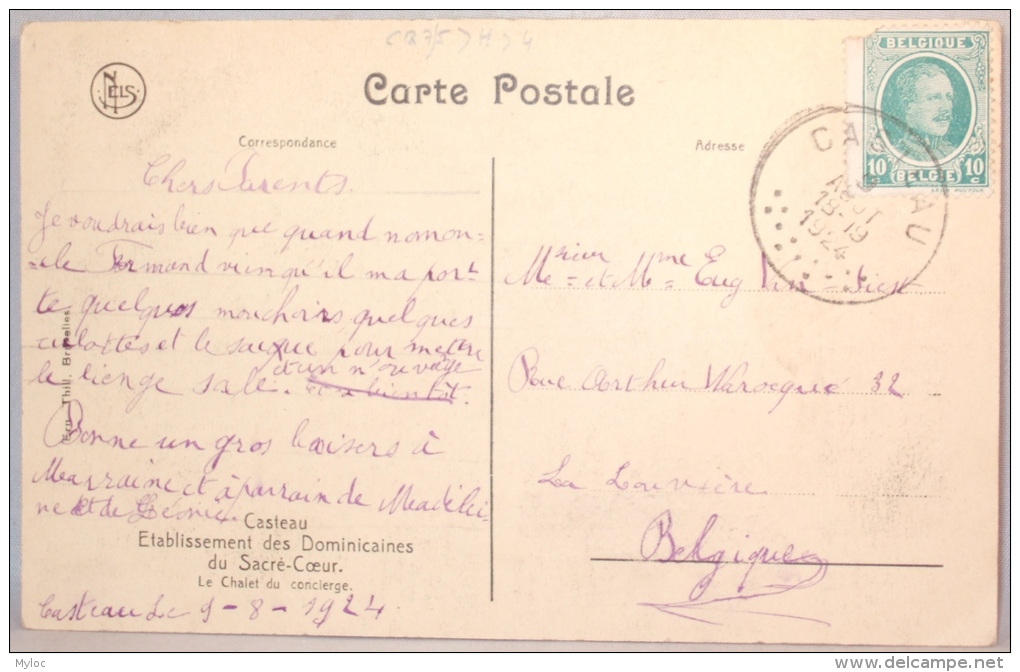 NELS
Carte Postale
BELGIQUE
10 10
BELGIË
CASTEAU
AOUT
18-19
1924
Correspondance
Adresse
Chers Parents.
Je voudrais bien que quand nomon=
=cle Fermand vien qu'il ma port
te quelques mouchoirs quelques
culottes et le sacque pour mettre
d'un n'ouvage
le lienge sale. et a bientôt.
Donne un gros baisers à
Marraine et à parrain de Meadelei-
ne et de Léonie.
Casteau
Etablissement des Dominicaines
du Sacré-Cœur.
Le Chalet du concierge.
Casteau Le 9-8-1924.
Ern. Thill, Bruxelles
Me=sieur et M=me Eug
Rue Arthur Warocqué 32
La Louvière
Belgique
Myloc
delcampe.net